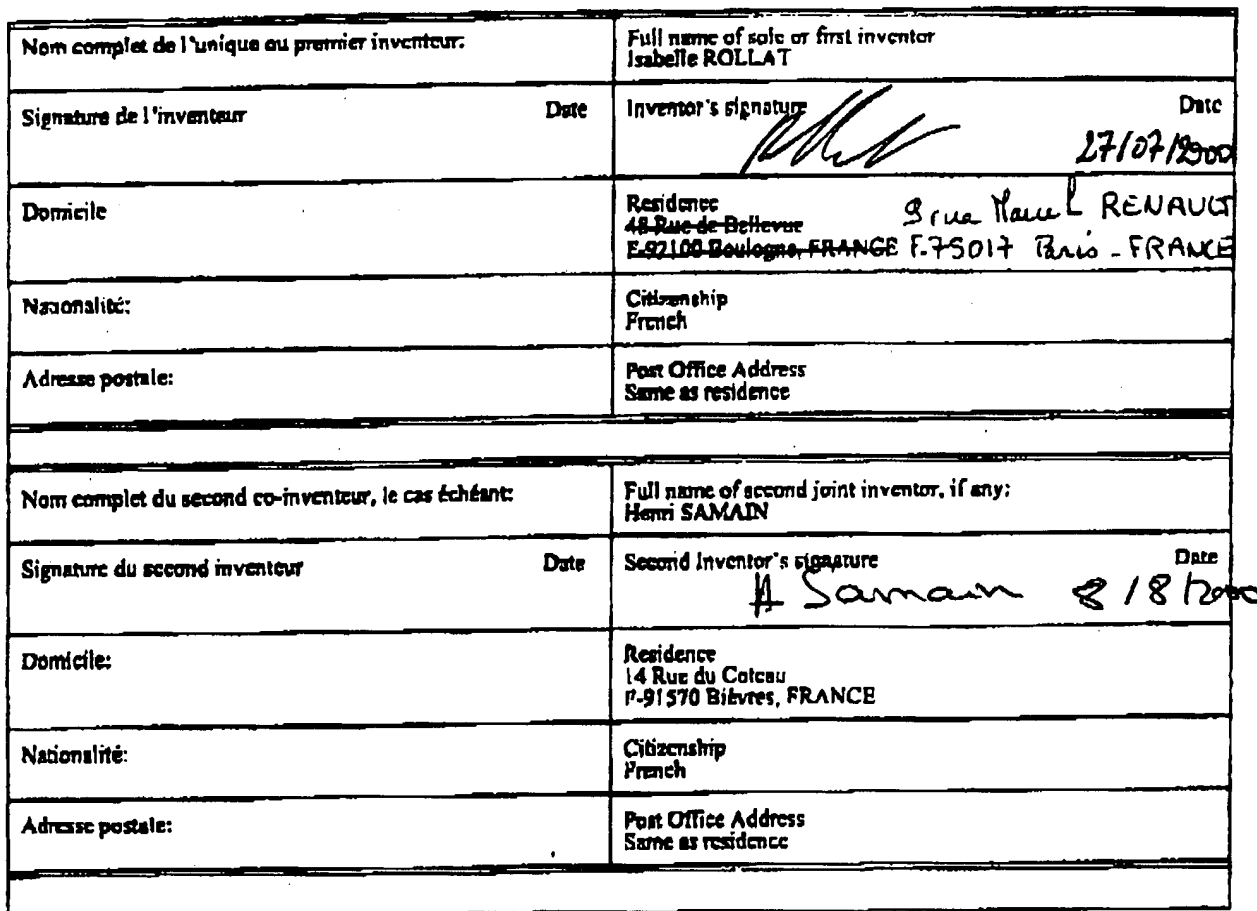 Nom complet de l'unique ou premier inventeur:
Full name of sole or first inventor
Isabelle ROLLAT
Signature de l'inventeur Date
Inventor's signature Date
27/07/2000
Domicile
Residence
48 Rue de Bellevue
F-92100 Boulogne, FRANCE
9 rue Marcel RENAULT
F.75017 Paris - FRANCE
Nationalité:
Citizenship
French
Adresse postale:
Post Office Address
Same as residence
Nom complet du second co-inventeur, le cas échéant:
Full name of second joint inventor, if any:
Henri SAMAIN
Signature du second inventeur Date
Second Inventor's signature Date
H Samain 8/8/2000
Domicile:
Residence
14 Rue du Coteau
F-91570 Bièvres, FRANCE
Nationalité:
Citizenship
French
Adresse postale:
Post Office Address
Same as residence